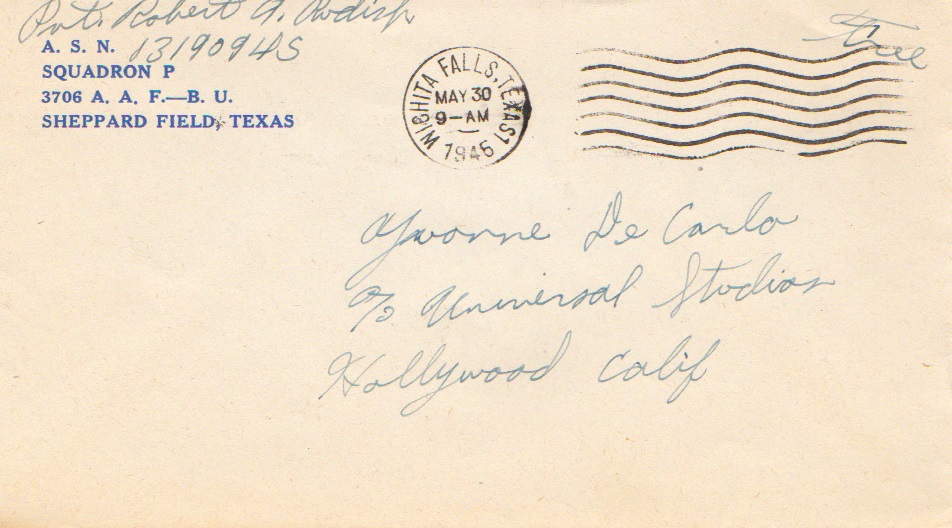 Pvt. Robert A.
A. S. N. 13190945
SQUADRON P
3706 A. A. F.—B. U.
SHEPPARD FIELD, TEXAS
Free
WICHITA FALLS, TEXAS 1
MAY 30
9-AM
1945
Yvonne De Carlo
c/o Universal Studios
Hollywood Calif